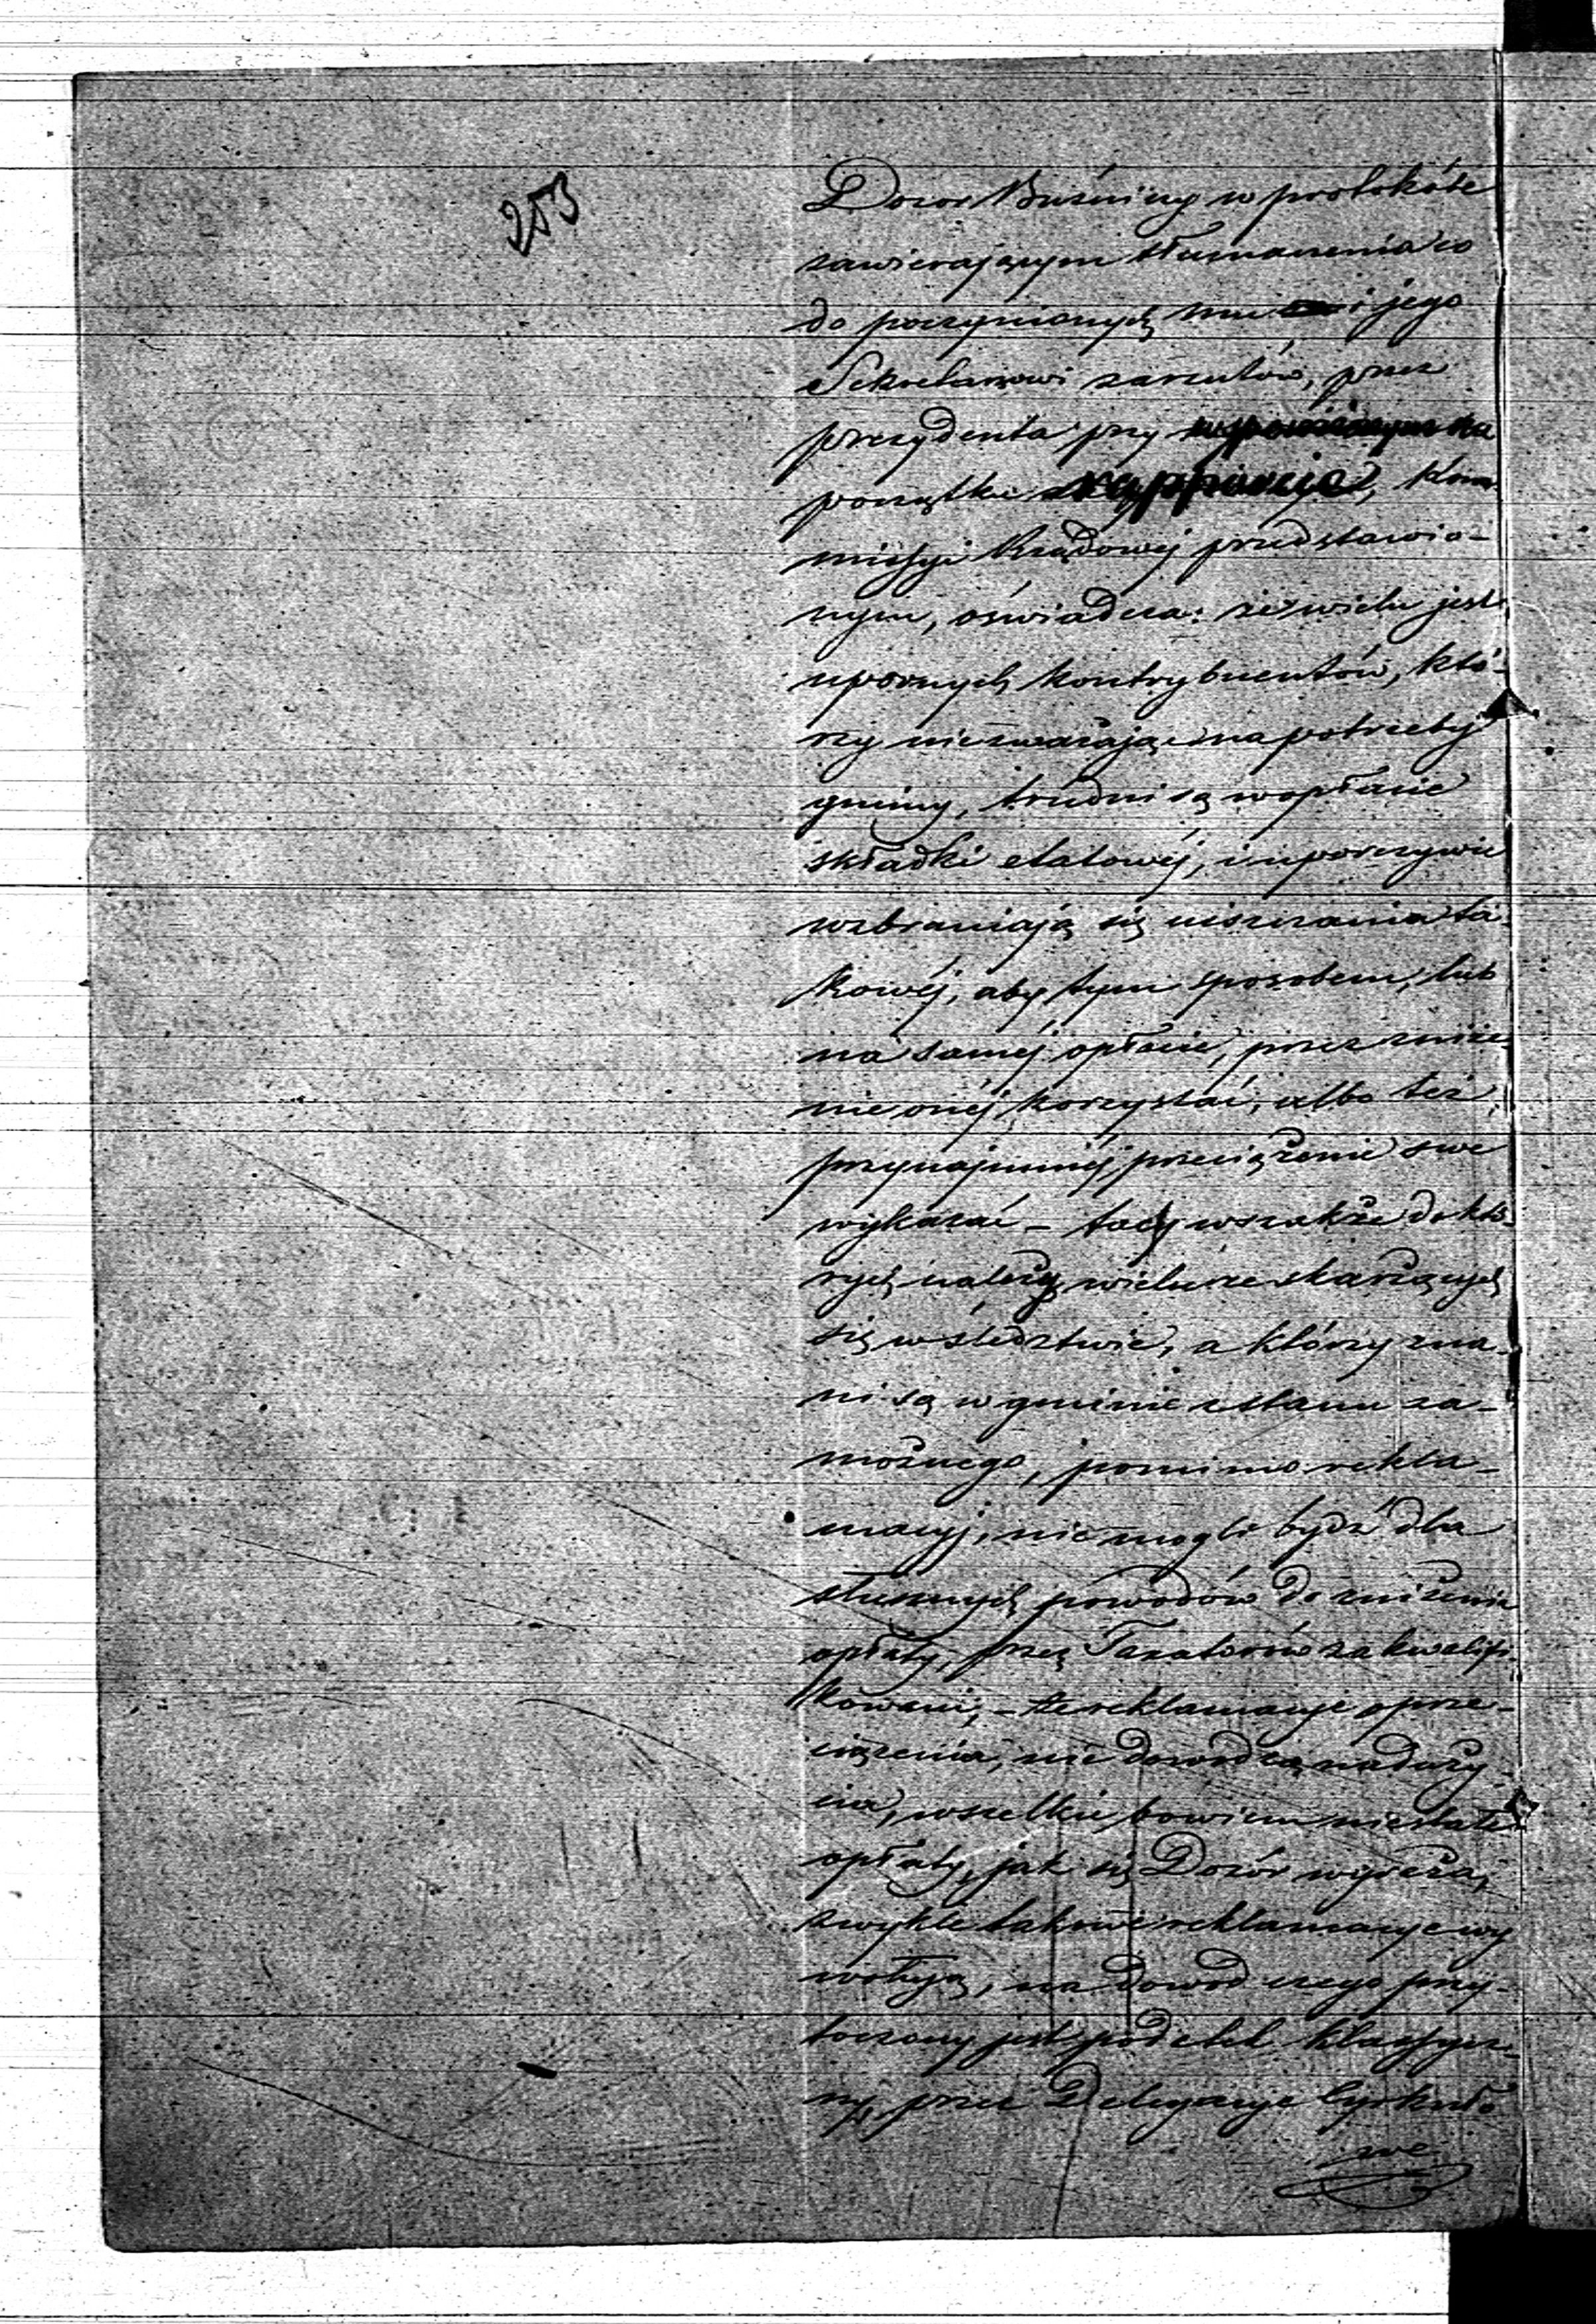 253
Dozor Bużniczy w protokóle
zawierającym tłumaczenia co
do poczynionych mu i jego
Sekretarzowi zarzutów, przez
prezydenta przy
początku rapporcie, Kom-
missyi Rządowéj przedstawio-
nym, oświadcza: że wielu jest
upornych kontrybuentów, któ-
rzy niezważając na potrzeby
gminy, trudni są w opłacie
składki etatowéj, i uporczywie
wzbraniają się uiszczania ta-
kowéj, aby tym sposobem, lub
na saméj opłacie, przez zniże-
nie onéj korzystać, albo też
przynajmniéj przeciążenie swe
wykazać – tacy wszakże do któ-
rych należy wielu ze skarżących
się w śledztwie, a którzy zna-
ni są w gminie z stanu za-
możnego, pomimo rekla-
macyj, nie mogli bydź dla
słusznych powodów do zniżenia
opłaty, przez Taxatorów zakwalifi-
kowani, – te reklamacye o prze-
ciążenia, nie dowodzą naduży-
cia, wszelkie bowiem niestałe
opłaty, jak się Dozór wyraża,
zwykle takowe reklamacye wy
wołują, na dowód czego przy-
toczony jest podatek klassycz-
ny, przez Delegacye Cyrkuło
we